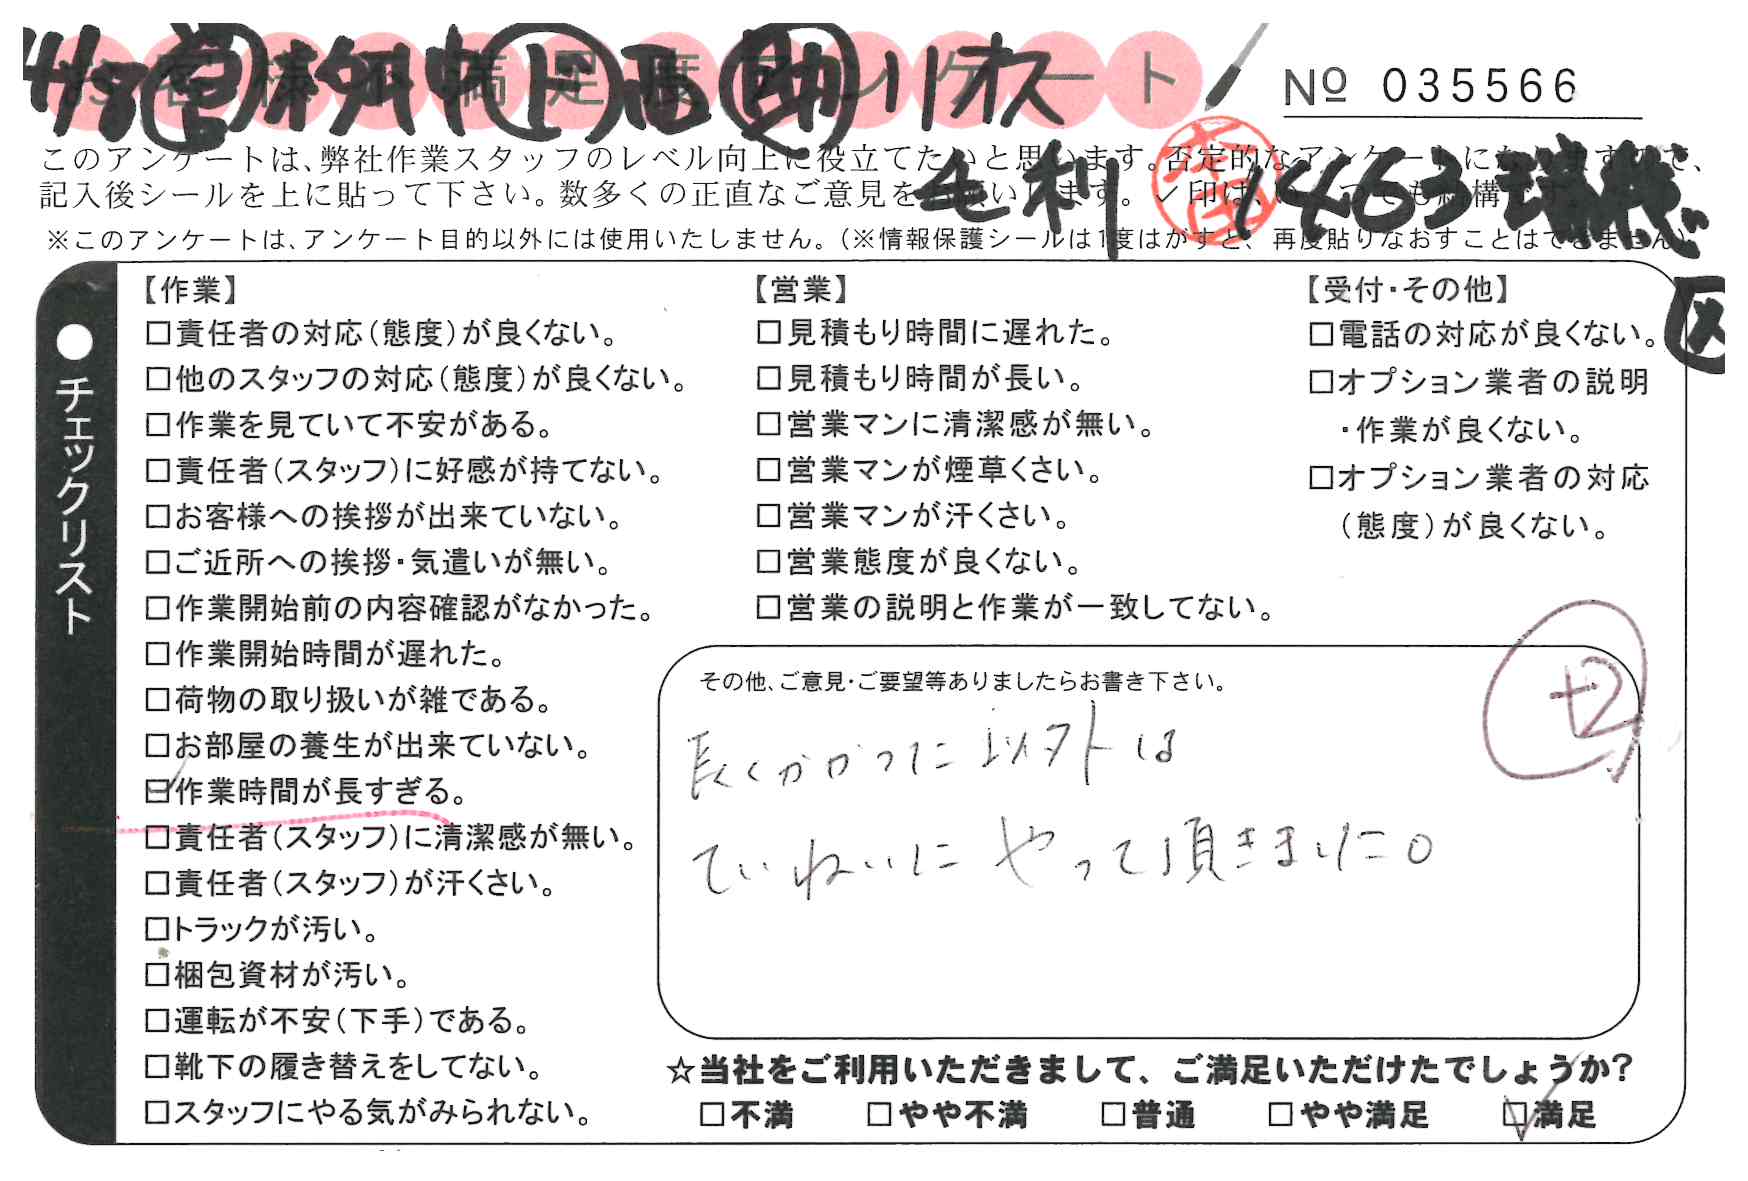 お客様不満足度アンケート
№ 035566
4/8 営 柳川 中 上 西 助 リオス
このアンケートは、弊社作業スタッフのレベル向上に役立てたいと思います。否定的なアンケートになりますので、
記入後シールを上に貼って下さい。数多くの正直なご意見をお願いします。✓印は、いくつでも結構です。
毛利 1463
※このアンケートは、アンケート目的以外には使用いたしません。(※情報保護シールは1度はがすと、再度貼りなおすことはできません)
●チェックリスト
【作業】
□責任者の対応(態度)が良くない。
□他のスタッフの対応(態度)が良くない。
□作業を見ていて不安がある。
□責任者(スタッフ)に好感が持てない。
□お客様への挨拶が出来ていない。
□ご近所への挨拶・気遣いが無い。
□作業開始前の内容確認がなかった。
□作業開始時間が遅れた。
□荷物の取り扱いが雑である。
□お部屋の養生が出来ていない。
☑作業時間が長すぎる。
□責任者(スタッフ)に清潔感が無い。
□責任者(スタッフ)が汗くさい。
□トラックが汚い。
□梱包資材が汚い。
□運転が不安(下手)である。
□靴下の履き替えをしてない。
□スタッフにやる気がみられない。
【営業】
□見積もり時間に遅れた。
□見積もり時間が長い。
□営業マンに清潔感が無い。
□営業マンが煙草くさい。
□営業マンが汗くさい。
□営業態度が良くない。
□営業の説明と作業が一致してない。
【受付・その他】
□電話の対応が良くない。
□オプション業者の説明
・作業が良くない。
□オプション業者の対応
(態度)が良くない。
その他、ご意見・ご要望等ありましたらお書き下さい。
+2
長くかかった以外は
ていねいにやって頂きました。
☆当社をご利用いただきまして、ご満足いただけたでしょうか?
□不満 □やや不満 □普通 □やや満足 ☑満足